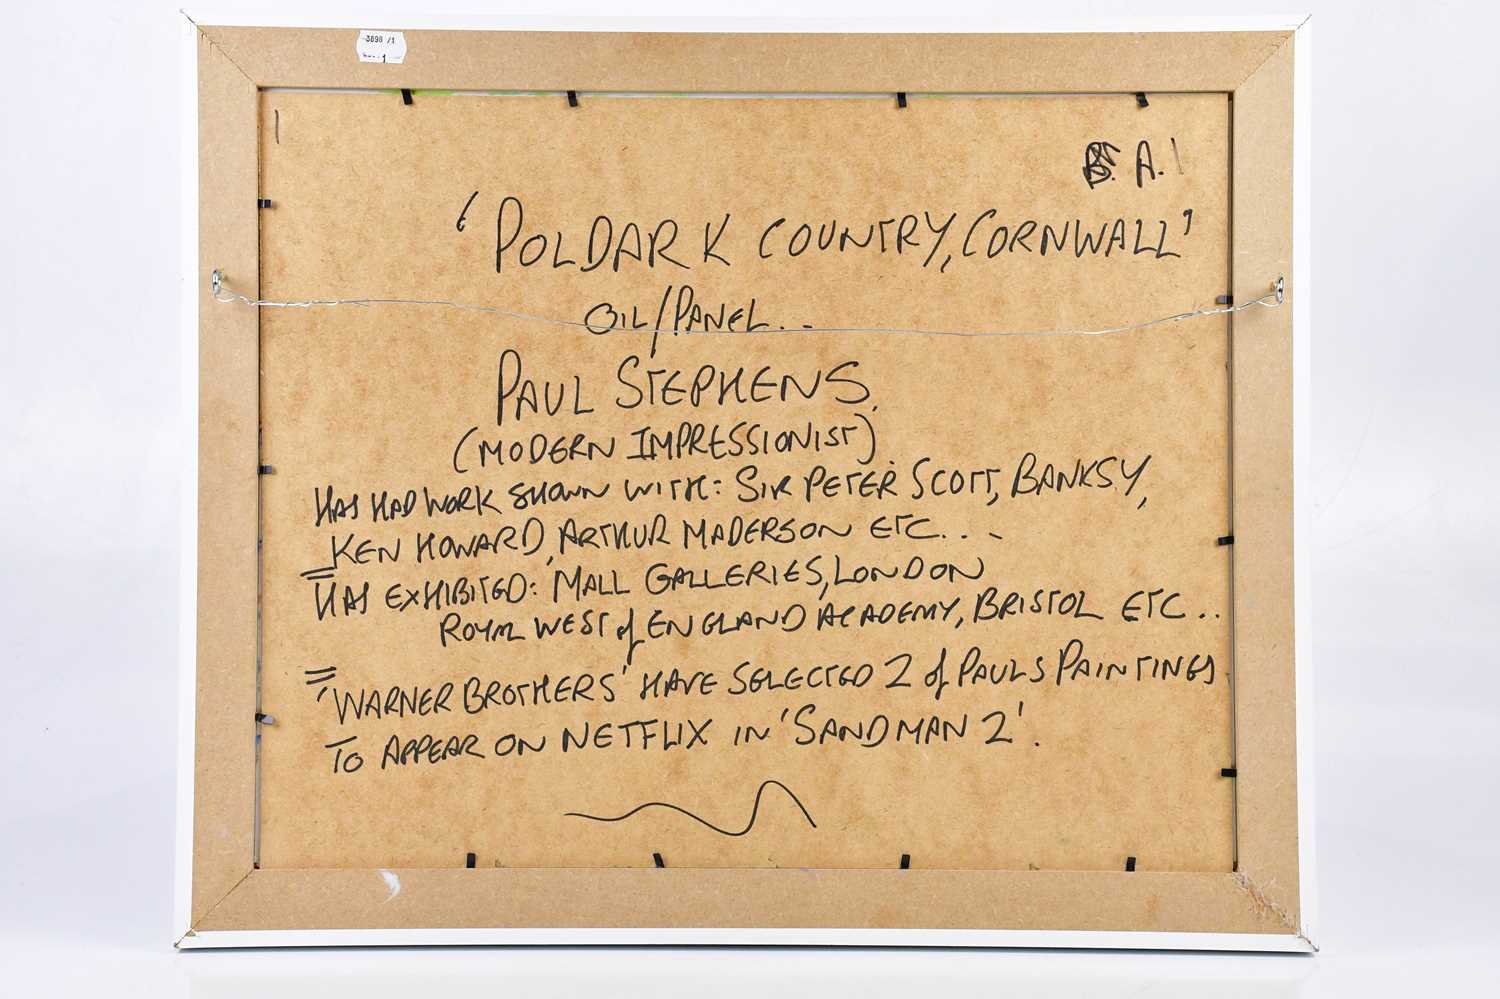 3898 /1
1
A.
'POLDARK COUNTRY, CORNWALL'
OIL/PANEL...
PAUL STEPHENS.
(MODERN IMPRESSIONIST).
HAS HAD WORK SHOWN WITH: SIR PETER SCOTT, BANKSY,
KEN HOWARD, ARTHUR MADERSON ETC...
= HAS EXHIBITED: MALL GALLERIES, LONDON
ROYAL WEST of ENGLAND ACADEMY, BRISTOL ETC..
= 'WARNER BROTHERS' HAVE SELECTED 2 of PAULS PAINTINGS
TO APPEAR ON NETFLIX IN 'SANDMAN 2'.